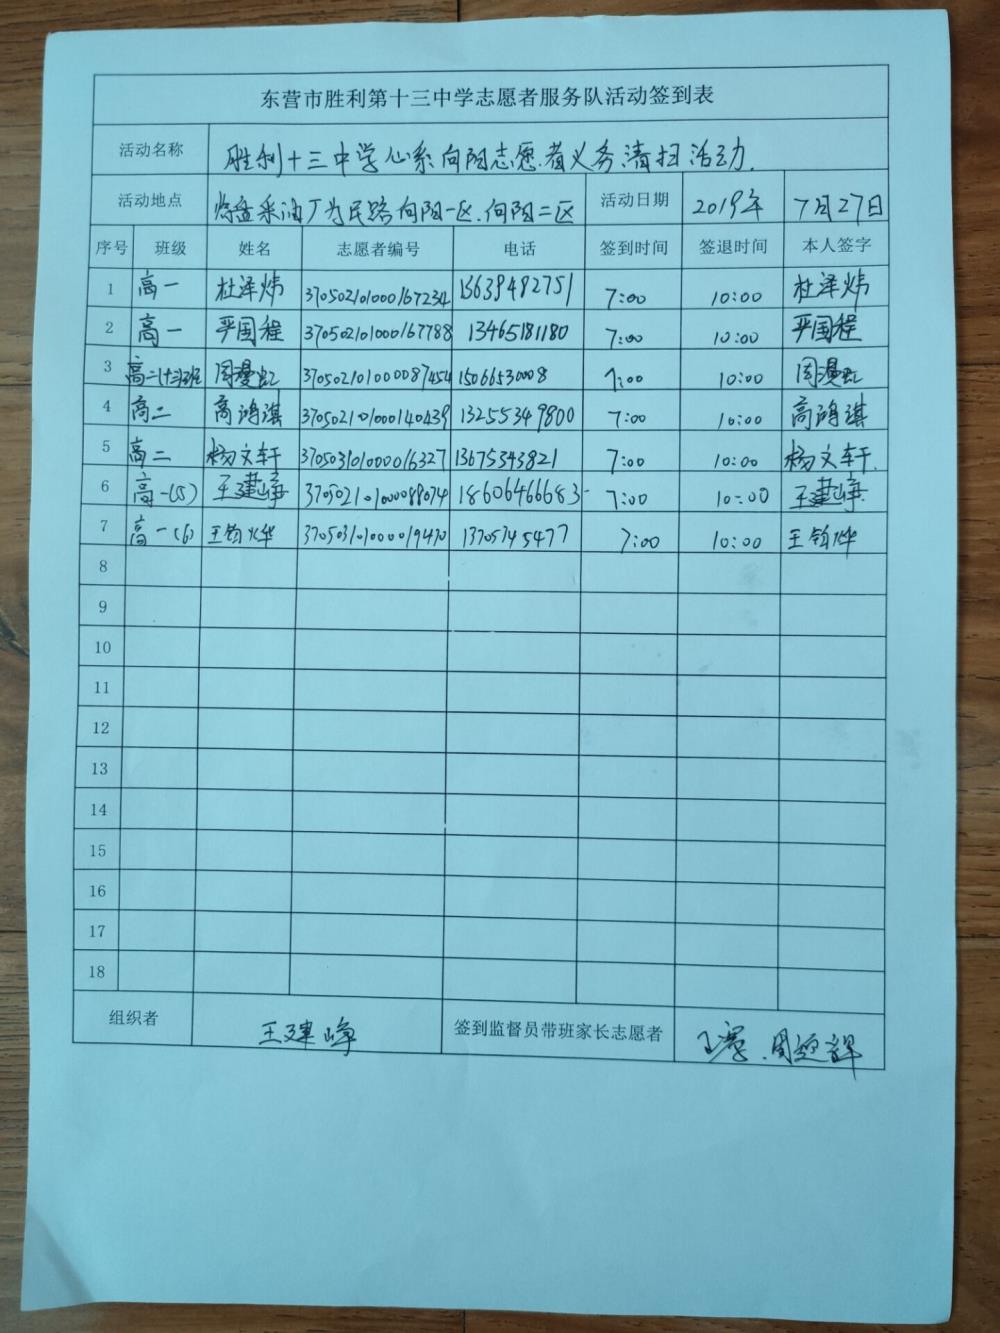 东营市胜利第十三中学志愿者服务队活动签到表
活动名称 胜利十三中学心系向阳志愿者义务清扫活动.
活动地点 采油厂为民路向阳一区.向阳二区 活动日期 2019年 7月27日
序号 班级 姓名 志愿者编号 电话 签到时间 签退时间 本人签字
1 高一 杜泽炜 370502101000167234 13639482751 7:00 10:00 杜泽炜
2 高一 严国程 370502101000167788 13465181180 7:00 10:00 严国程
3 高二(十三)班 周漫虹 370502101000087454 15066530008 7:00 10:00 周漫虹
4 高二 高鸿淇 370502101000140439 13255349800 7:00 10:00 高鸿淇
5 高二 杨文轩 370503101000016327 13675343821 7:00 10:00 杨文轩.
6 高一(5) 王建峥 370502101000088074 18606466683 7:00 10:00 王建峥
7 高一(6) 王钧烨 370503101000019470 13705745477 7:00 10:00 王钧烨
8
9
10
11
12
13
14
15
16
17
18
组织者 王建峥 签到监督员带班家长志愿者